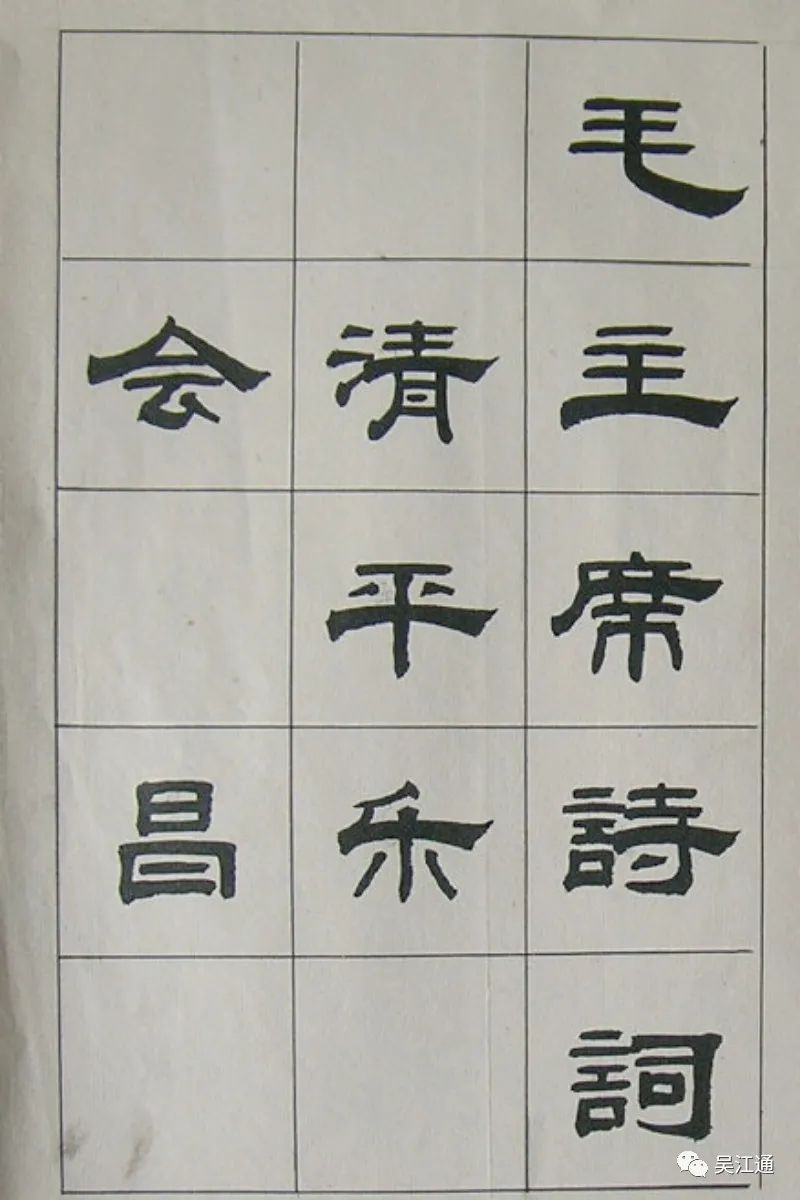 毛主席詩詞
清平乐
会昌
吴江通